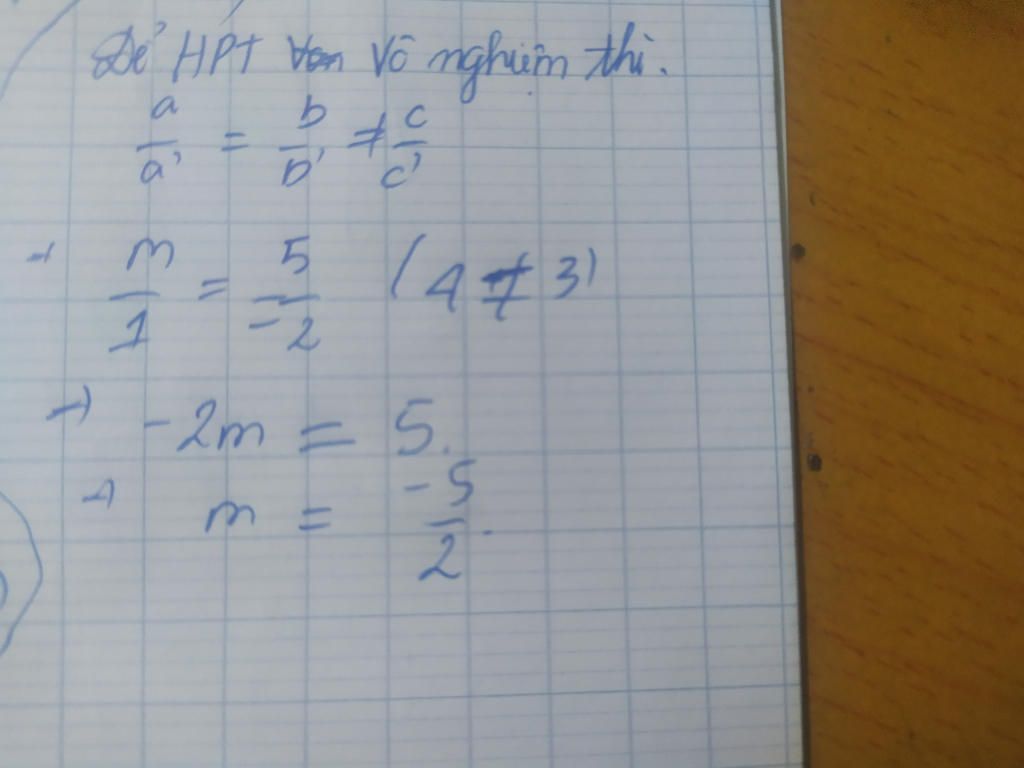 Để HPT Vô nghiệm thì.
a/a' = b/b' ≠ c/c'
→ m/1 = 5/-2 (4 ≠ 3)
→ -2m = 5.
→ m = -5/2.